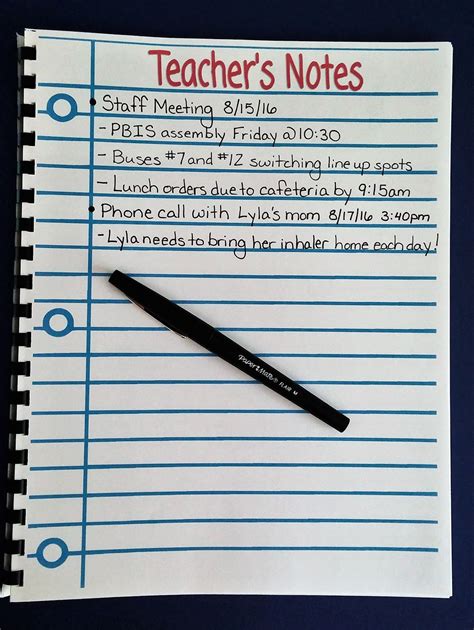 Teacher's Notes
• Staff Meeting 8/15/16
- PBIS assembly Friday @ 10:30
- Buses #7 and #12 switching line up spots
- Lunch orders due to cafeteria by 9:15am
• Phone call with Lyla's mom 8/17/16 3:40pm
- Lyla needs to bring her inhaler home each day!
Paper Mate® FLAIR M